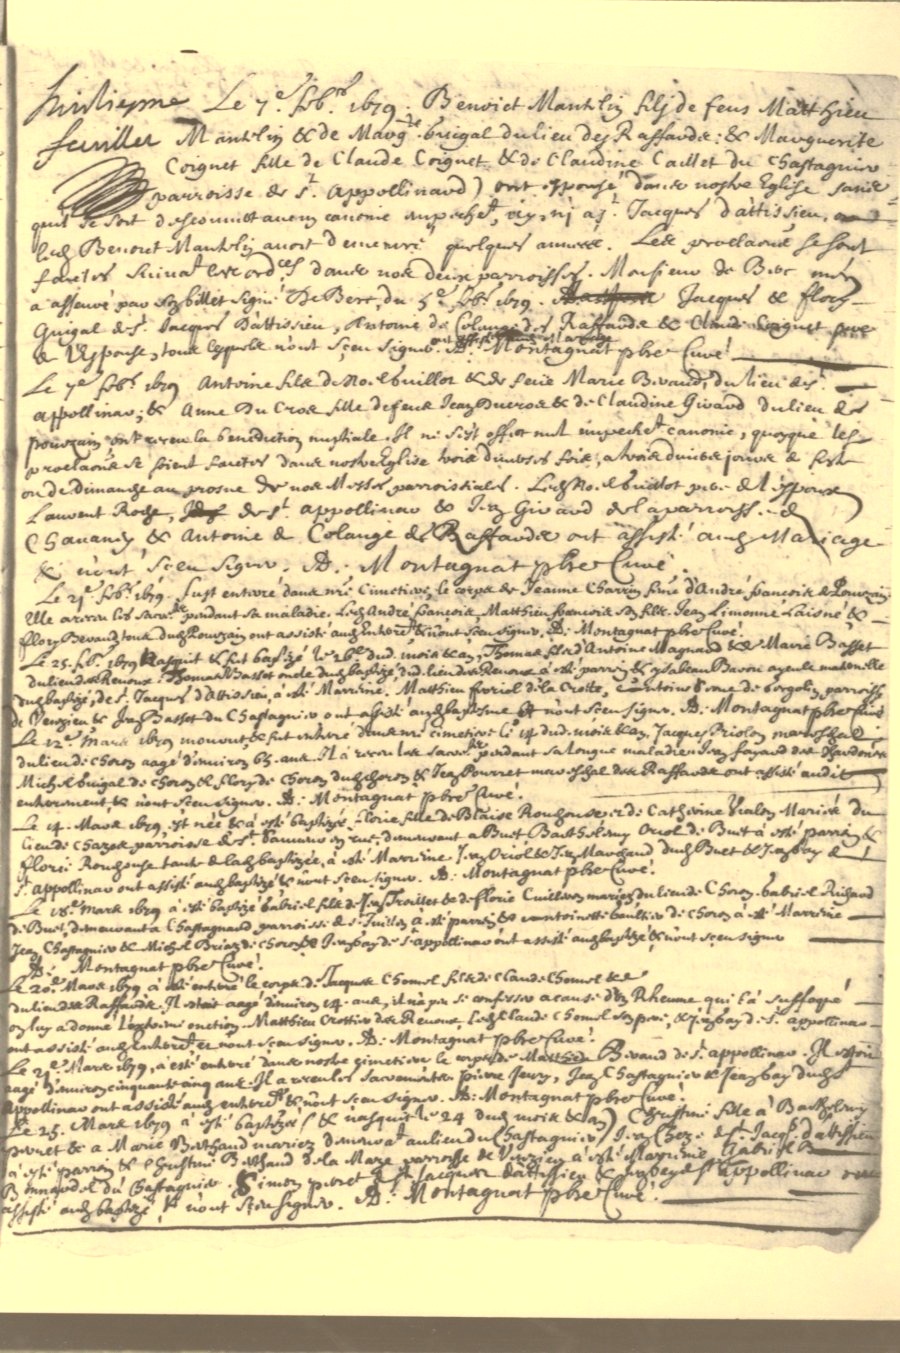 huitiesme Le 7e feb.r 1679. Benoict Manthelin fils de feus Matthieu
feuillet Manthelin & de Marg.te guigal du lieu des Raffaude: & Marguerite
Coignet fille de Claude Coignet & de Claudine Caillet du Chastagnier
parroisse de St. Appollinard) ont espousé dans nostre Eglise sans
quil se soit descouuert aucun canonic empechet. ny a St. Jacques d'attissieu,
led. Benoict Manthelin auoit demeuré quelques années. Les proclaõns se sont
faictes suiuat les ordces dans nos deux parroisses. Monsieur de Berc
a asseuré par son billet signé De Berc, du 5e feb.r 1679. Jacques & flory
Guigal de St. Jacques D'attissieu, Antoine de Colange des Raffaude & Claude Coignet pere
de l'espouse, tous lesquels n'ont sceu signer. A. Montagnat pbre Curé
Le 7e feb.r 1679 Antoine fils de Noel guillot & de feue Marie Beraud, du lieu de St.
appollinar, & Anne Du Cros fille de feu Jean Ducros & de Claudine Giraud du lieu de
Pouzrain, ont receu la benediction nuptiale. Il ne s'est offert nul empechet canonic, quoyque les
proclaõns se soient faictes dans nostre Eglise trois diuerses fois, a trois diuers jours de feste
ou de dimanche au prosne de nos Messes parroissiales. Led. Noel guillot pere de l'espoux
Laurent Roche, de St. appollinar & Jean Giraud de la parroisse de
Chanandy & Antoine de Colange des Raffaude ont assisté aud. Mariage
& n'ont sceu signer. A. Montagnat pbre Curé.
Le 21e feb.r 1679. fust enterré dans nre Cimetiere le corps de Jeanne Charrin feme d'André francois de Pouzrain.
Elle a receu les sacremts pendant sa maladie. Led. André francois, Matthieu francois son fils. Jean Limonne Laisné &
flory Beraud tous dud. Pouzrain ont assisté aud. Enterret & n'ont sceu signer. A. Montagnat pbre Curé.
Le 25. feb.r 1679 Nasquit & fut baptizé le 26e dud. mois & an, Thomas fils d'Antoine Magnand & de Marie Basset
du lieu des Renoux. Thomas Basset oncle dud. baptizé dud. lieu des Renoux a esté parrin & ysabeau Baron ayeule maternelle
dud. baptizé, de St. Jacques d'Attissieu, a esté Marrine. Matthieu ferriol de la Crotte, parroisse
de Veuzieu & Jean Basset du Chastagnier ont assisté aud. baptesme & n'ont sceu signer. A. Montagnat pbre Curé
Le 12e Mars 1679 mourut, & fut enterré dans nre cimetiere le 14 dud. mois & an, Jacques Priolon mareschal
du lieu de Choron aagé d'enuiron 63. ans. Il a receu les sacremts pendant sa longue maladie. Jean fayard des
Michel guigal de Choron & flory de Choron dud. Choron & Jean Pourret mareschal des Raffaude ont assisté audit
enterrement & n'ont sceu signer. A. Montagnat pbre Curé.
Le 14. Mars 1679 est née & a esté baptizée florie fille de Blaise Rouchouse & de Catherine Vialon Mariés du
Lieu de parroisse de St. demeurant a Buet Barthelemy Oriol de Buet a esté parrin &
florie Rouchouse tante de lad. baptizée, a esté Marrine Jean Oriol & Jean Marchand dud. Buet & Jean bay de
St. appollinar ont assisté aud. baptizé & n'ont sceu signer. A. Montagnat pbre Curé.
Le 18e Mars 1679 a esté baptizé Gabriel fils de Jean Trouillet & de florie Cuilleron mariés du lieu de Choron. Gabriel Richard
de Buet, demeurant a Chastagnard, parroisse de St. Juillien, a esté parrin & anthoinette Gaultier de Choron a esté Marrine
Jean Chastagnier & Michel Briand de Choron & Jean bay de St. appollinar ont assisté aud. baptizé & n'ont sceu signer
A. Montagnat pbre Curé.
Le 20e Mars 1679 a esté enterré le corps de Jacques Chomel fils de Claude Chomel & de
du lieu des Raffaude. Il estoit aagé d'enuiron 14. ans, il n'a peu se confesser a cause d'un Rheume qui l'a suffoqué
on luy a donné l'extreme onction. Matthieu Crottier des Renoux, led. Claude Chomel son pere, & Jean bay de St. appollinar
ont assisté aud. Enterret & n'ont sceu signer. A. Montagnat pbre Curé.
Le 21e Mars 1679, a esté enterré dans nostre cimetiere le corps de Matthieu Beraud de St. appollinar. Il estoit
aagé d'enuiron cinquante cinq ans. Il a receu les sacremts pierre Jeury, Jean Chastagnier & Jean bay dud. St.
Appollinar ont assisté aud. enterret & n'ont sceu signer. A. Montagnat pbre Curé.
Le 25. Mars 1679 a esté baptizée (& nasquit le 24 dud. mois & an) Christine fille a Barthelemy
peret & a Marie Berthaud mariez demeurat au lieu du Chastagnier) Jean de St. Jacques d'attissieu
a esté parrin & Christine Berthaud de la Maze parroisse de Veuzieu a esté Marrine. Gabriel
Bonnardel du Chastagnier. Simon peret de St. Jacques d'attissieu & Jean bay de St. Appollinar ont
assisté aud. baptizé & n'ont sceu signer. A. Montagnat pbre Curé.